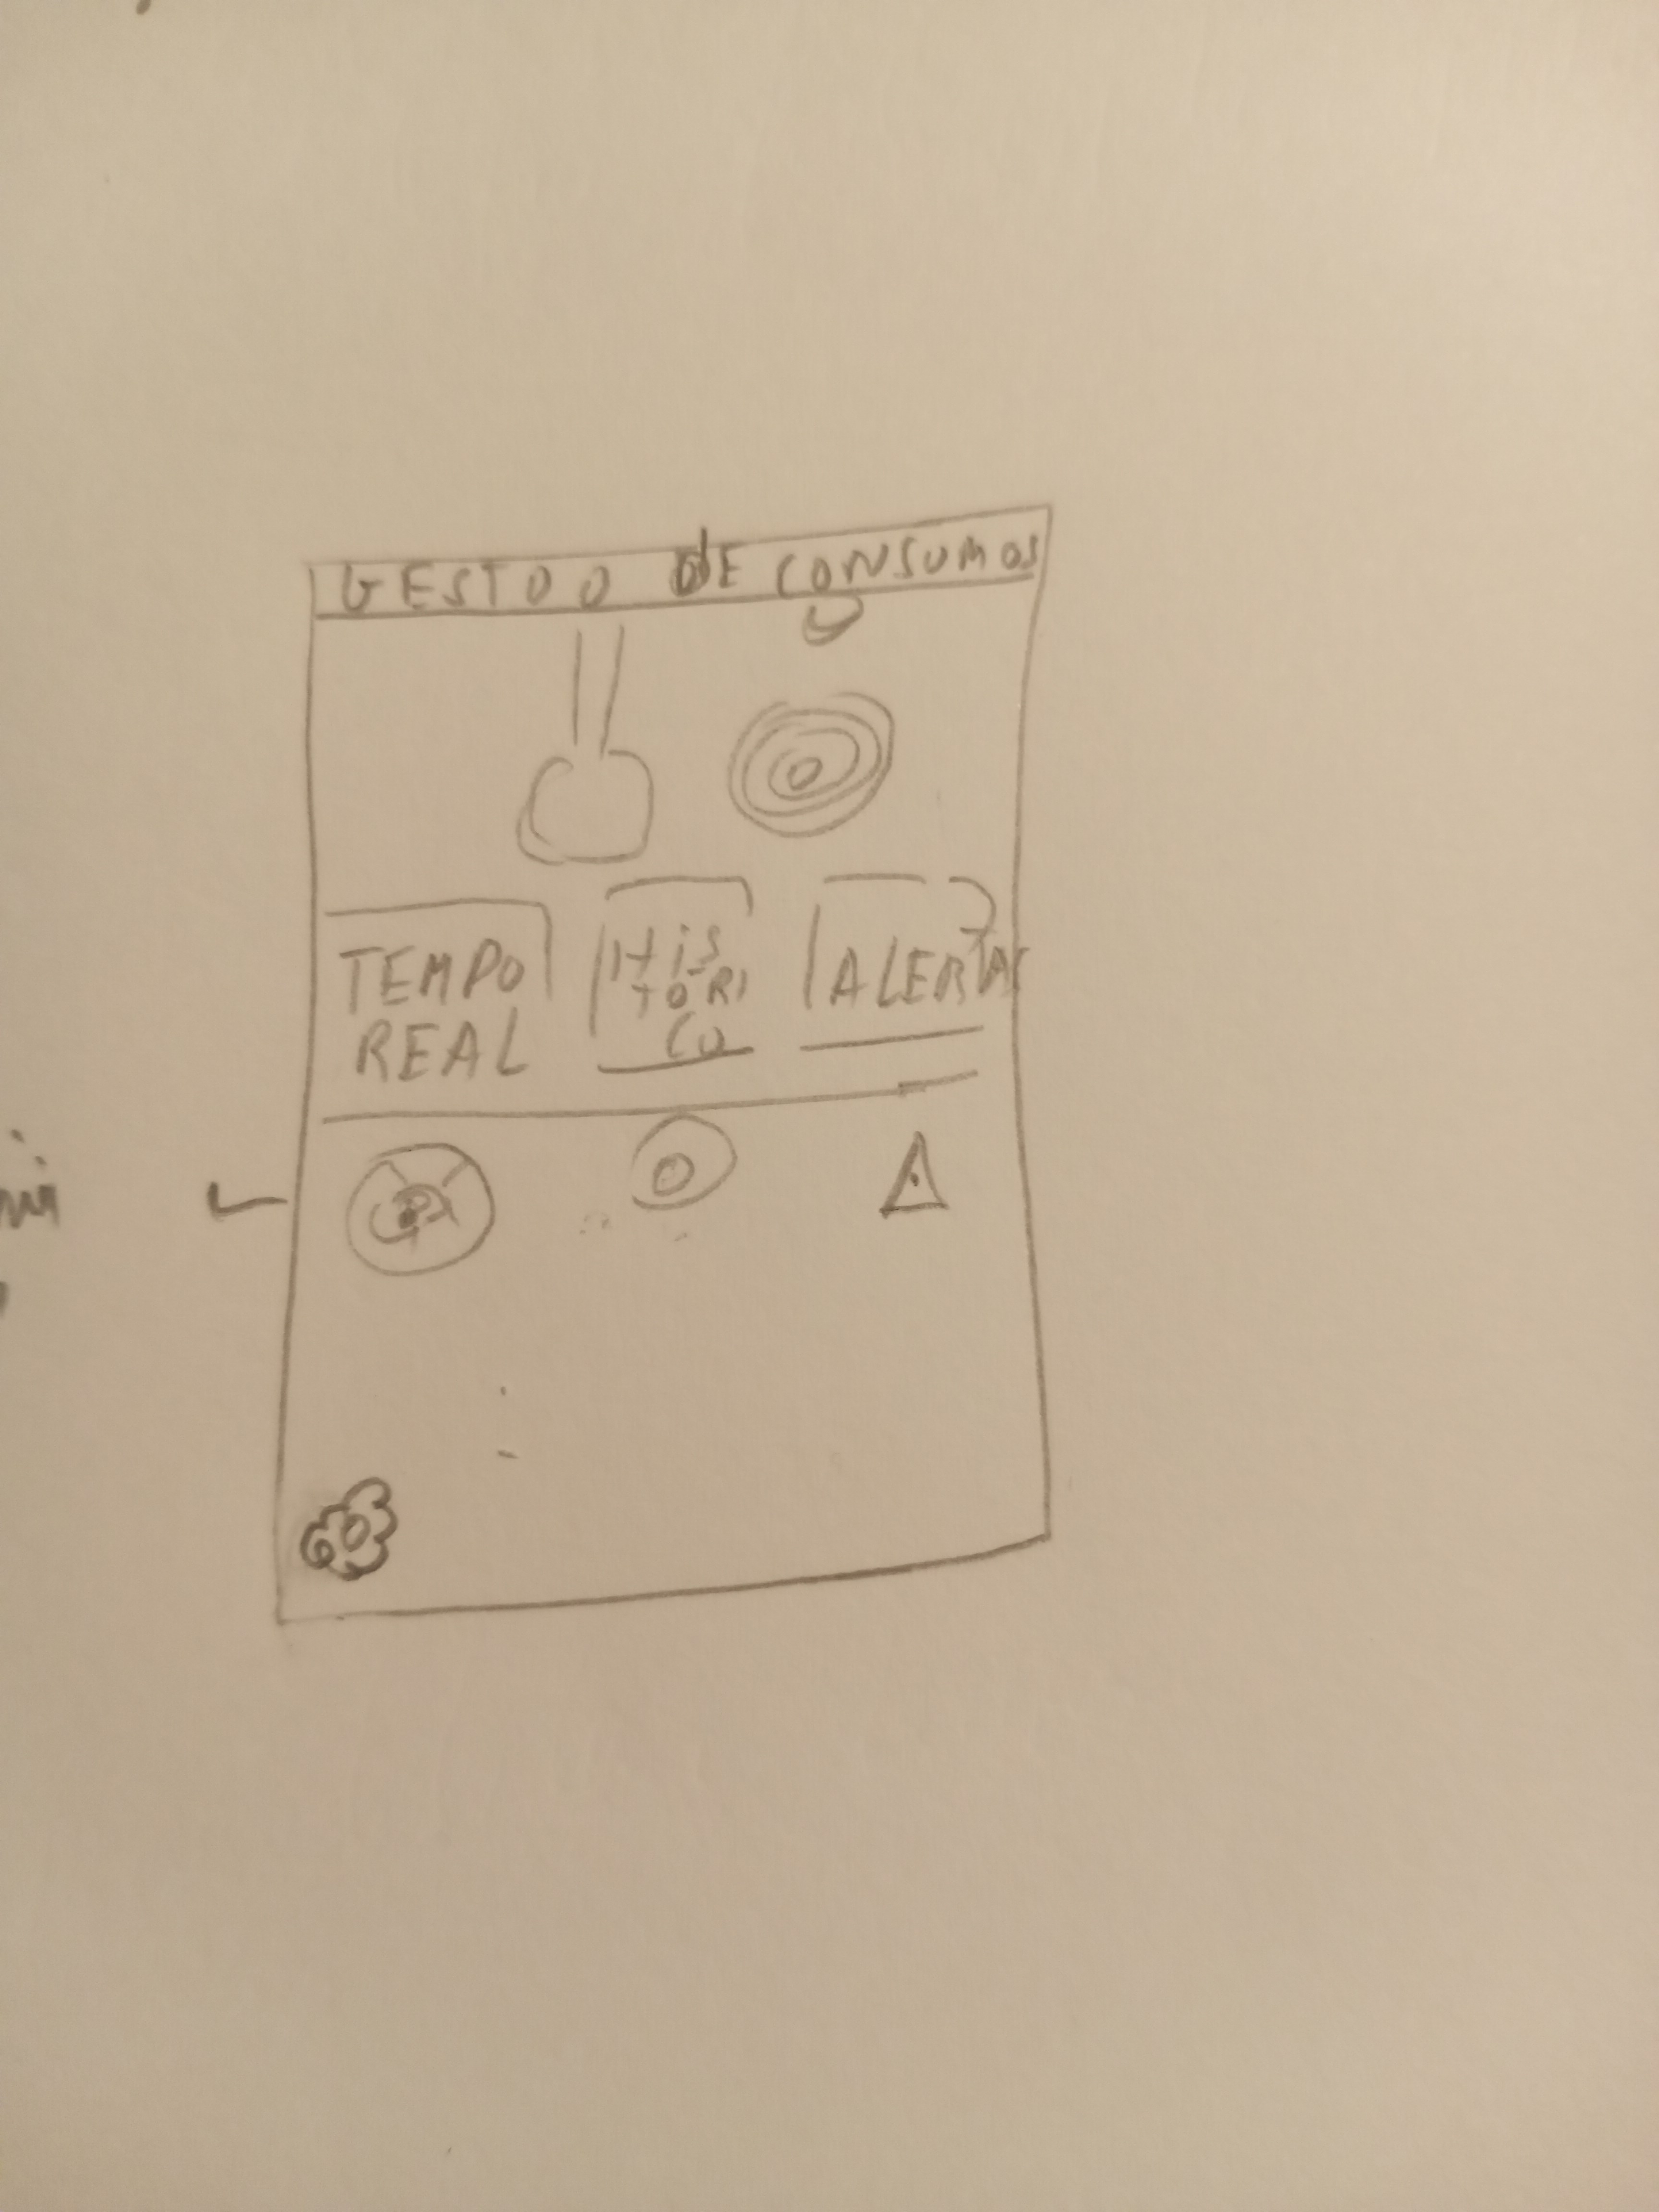 GESTOO DE CONSUMOS
TEMPO
REAL
HiS
TORI
CO
ALERTAS